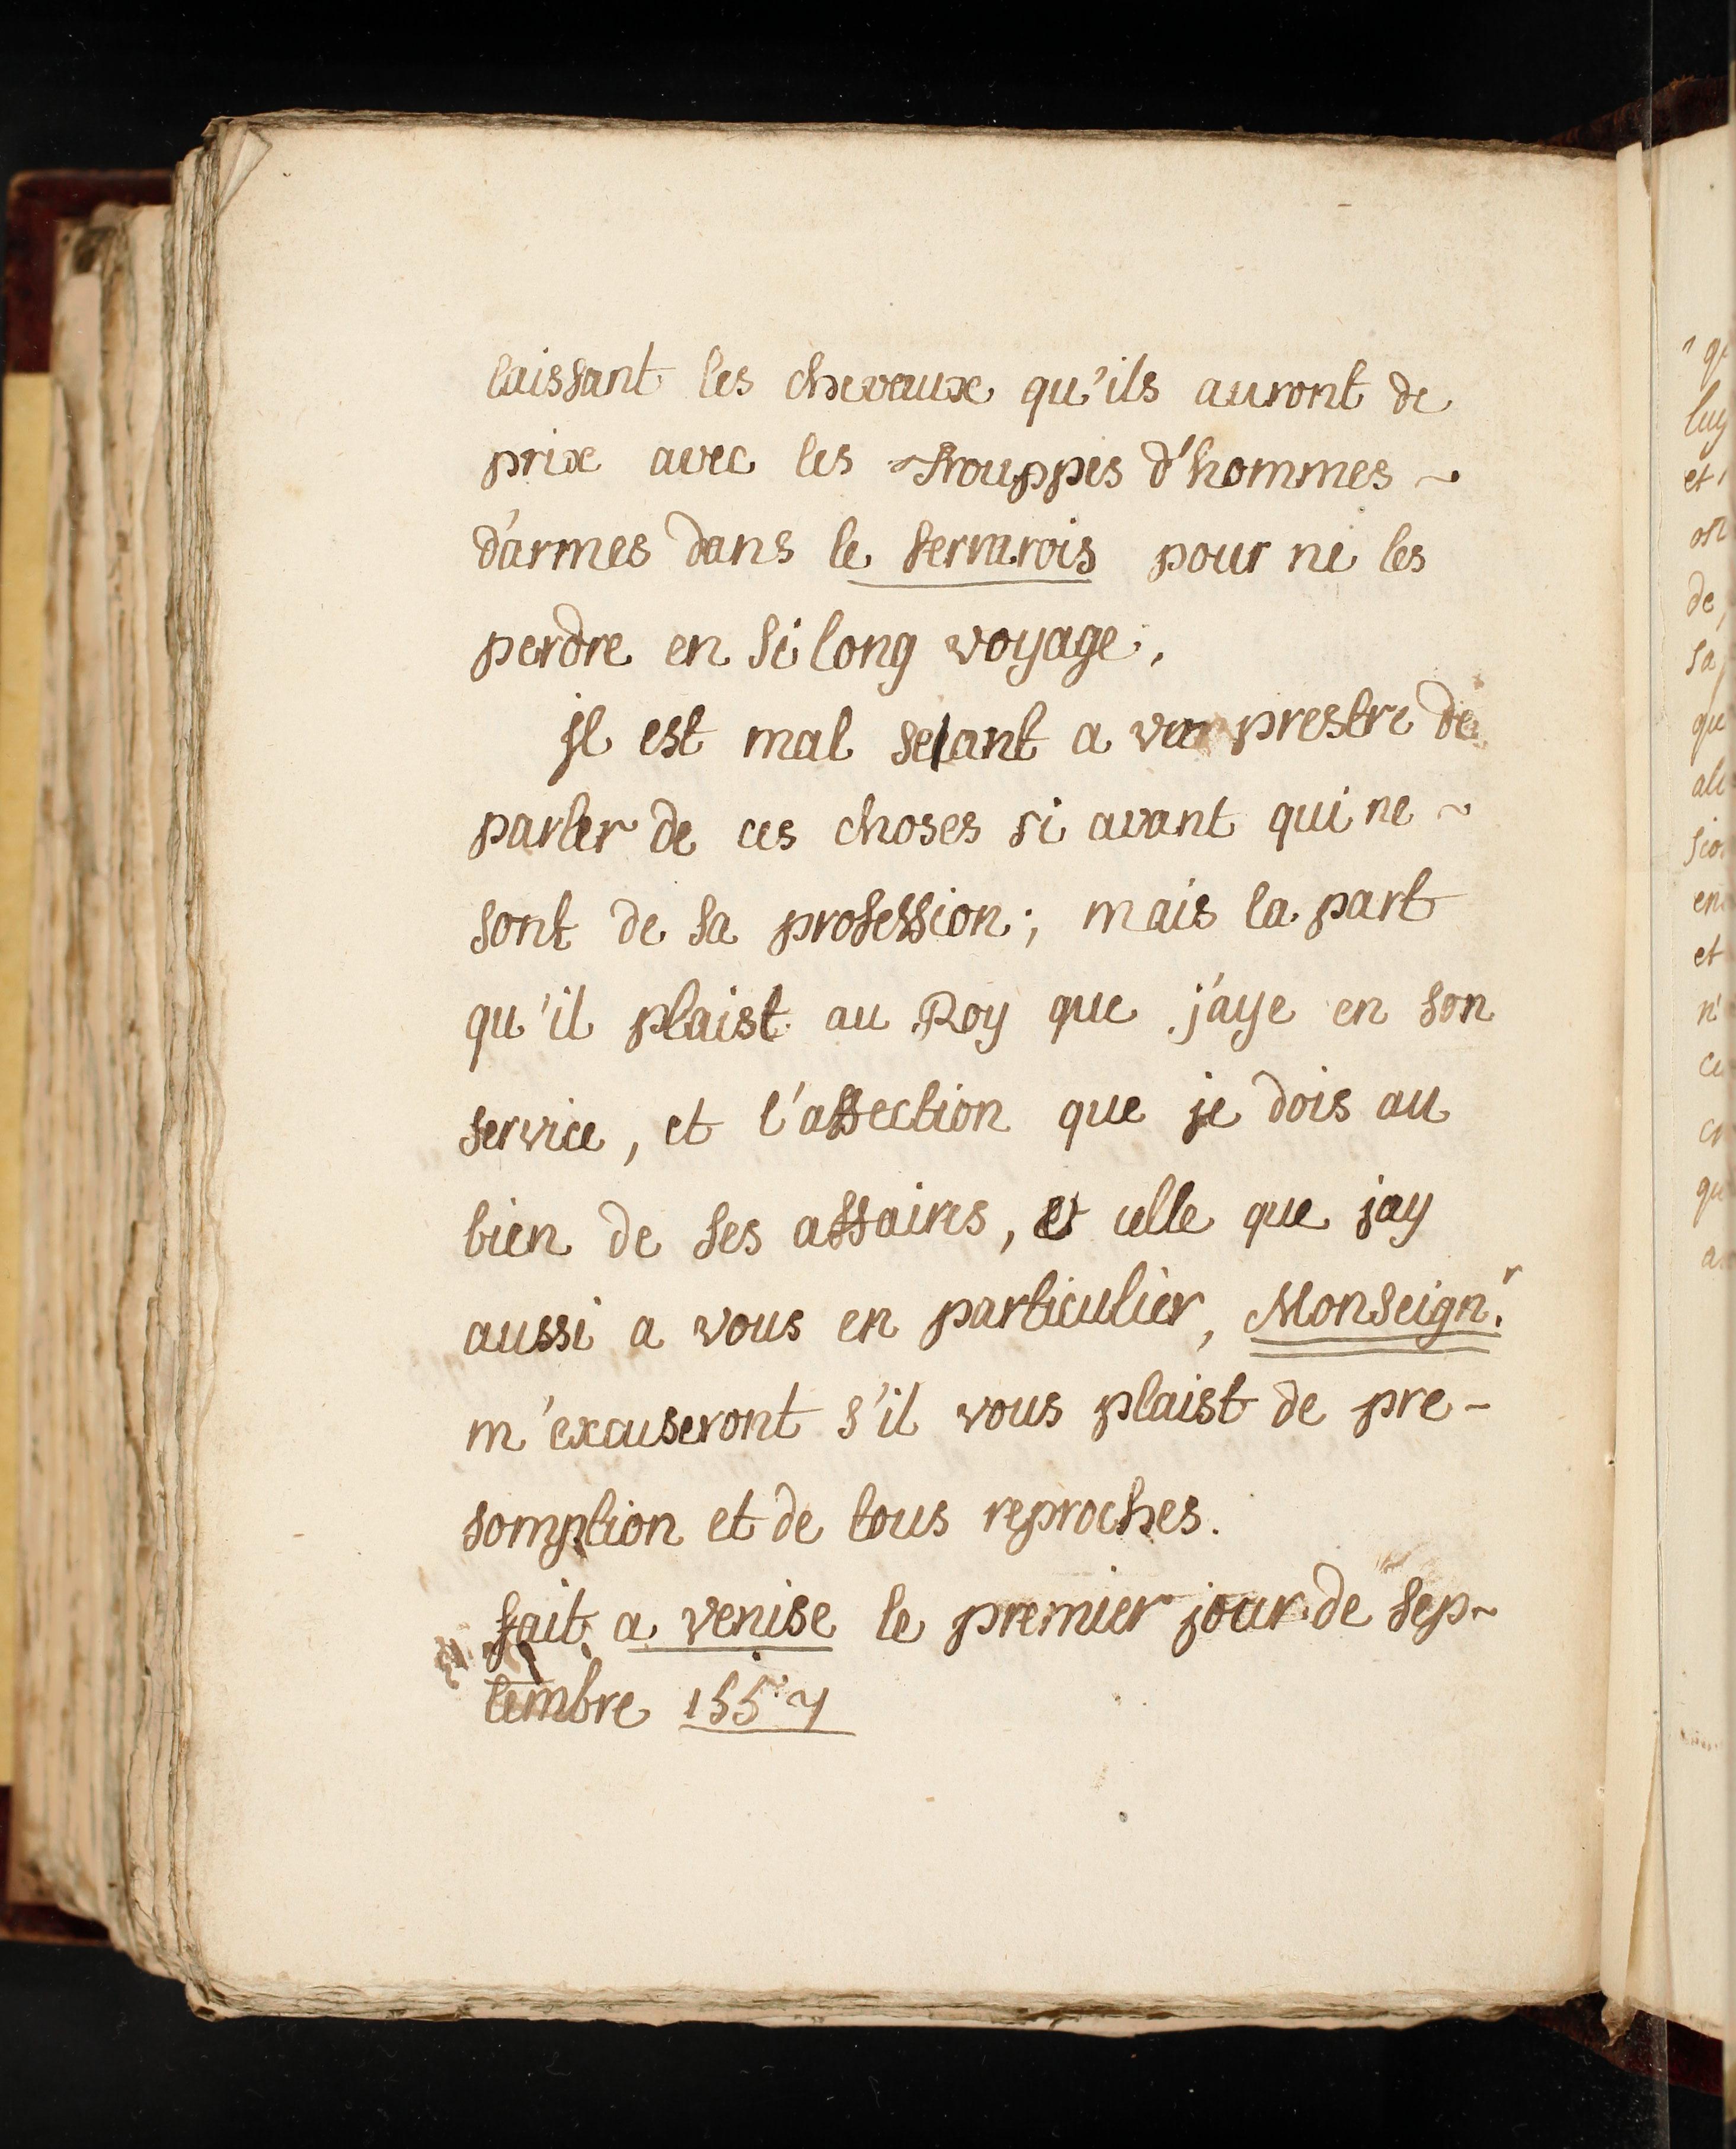 laissant les chevaux qu'ils auront de
prix avec les trouppes d'hommes ~
d'armes dans le ferrarois pour ne les
perdre en si long voyage.
jl est mal seant a un prestre de
parler de ces choses si avant qui ne ~
sont de sa profession; mais la part
qu'il plaist au Roy que j'aye en son
service, et l'affection que je dois au
bien de ses affaires, et celle que jay
aussi a vous en particulier, Monseign.r
m'excuseront s'il vous plaist de pre-
somption et de tous reproches.
fait a venise le premier jour de sep~
tembre 1557